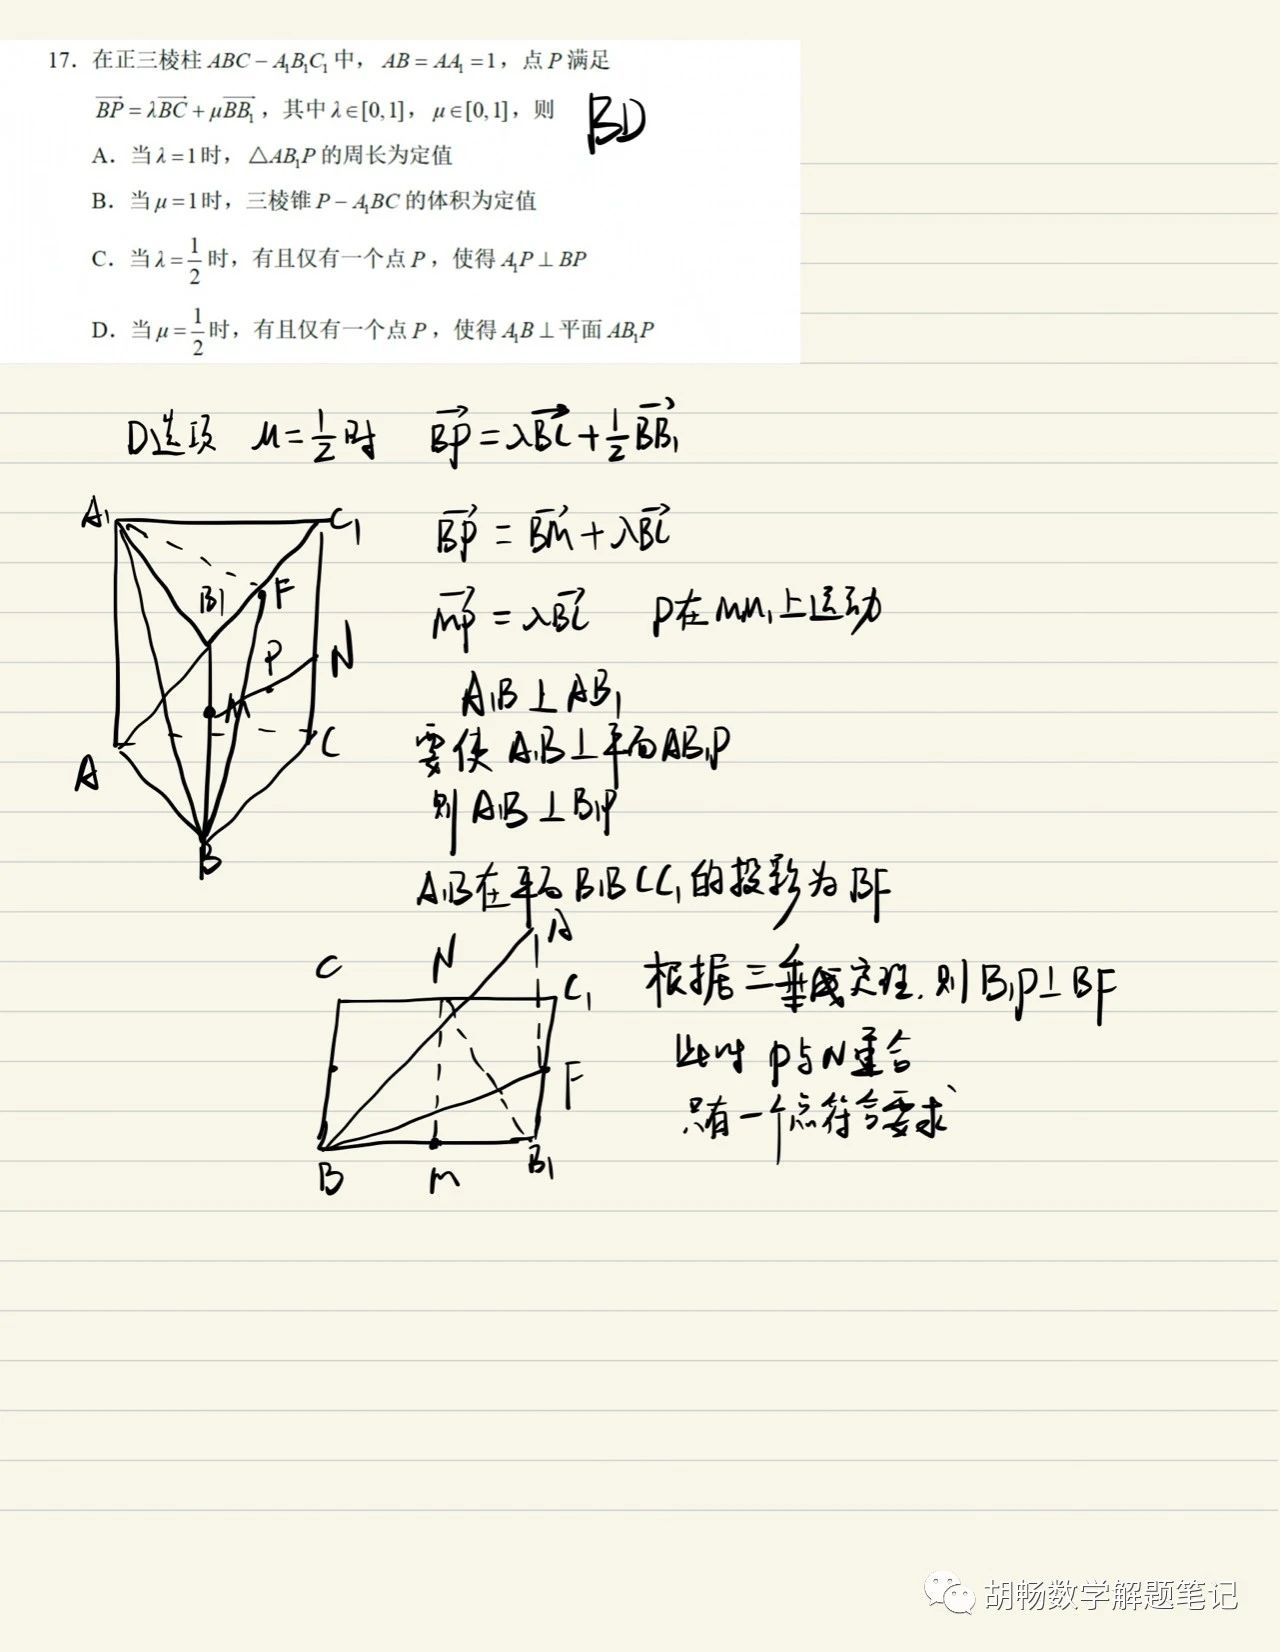 17. 在正三棱柱 ABC − A₁B₁C₁ 中，AB = AA₁ = 1，点 P 满足
BP = λBC + μBB₁，其中 λ∈[0,1]，μ∈[0,1]，则
BD
A. 当 λ = 1 时，△AB₁P 的周长为定值
B. 当 μ = 1 时，三棱锥 P − A₁BC 的体积为定值
C. 当 λ = 1/2 时，有且仅有一个点 P，使得 A₁P ⊥ BP
D. 当 μ = 1/2 时，有且仅有一个点 P，使得 A₁B ⊥ 平面 AB₁P
D选项 μ=1/2时 BP=λBC+1/2BB₁
A₁ C₁ B₁ F P N M A C B
BP = BM + λBC
MP = λBC P在MM₁上运动
A₁B ⊥ AB₁
要使 A₁B⊥平面AB₁P
则 A₁B ⊥ B₁P
A₁B在平面B₁BCC₁的投影为BF
C N A C₁ F B M B₁
根据三垂线定理.则B₁P⊥BF
此时 P与N重合
只有一个点符合要求
胡畅数学解题笔记